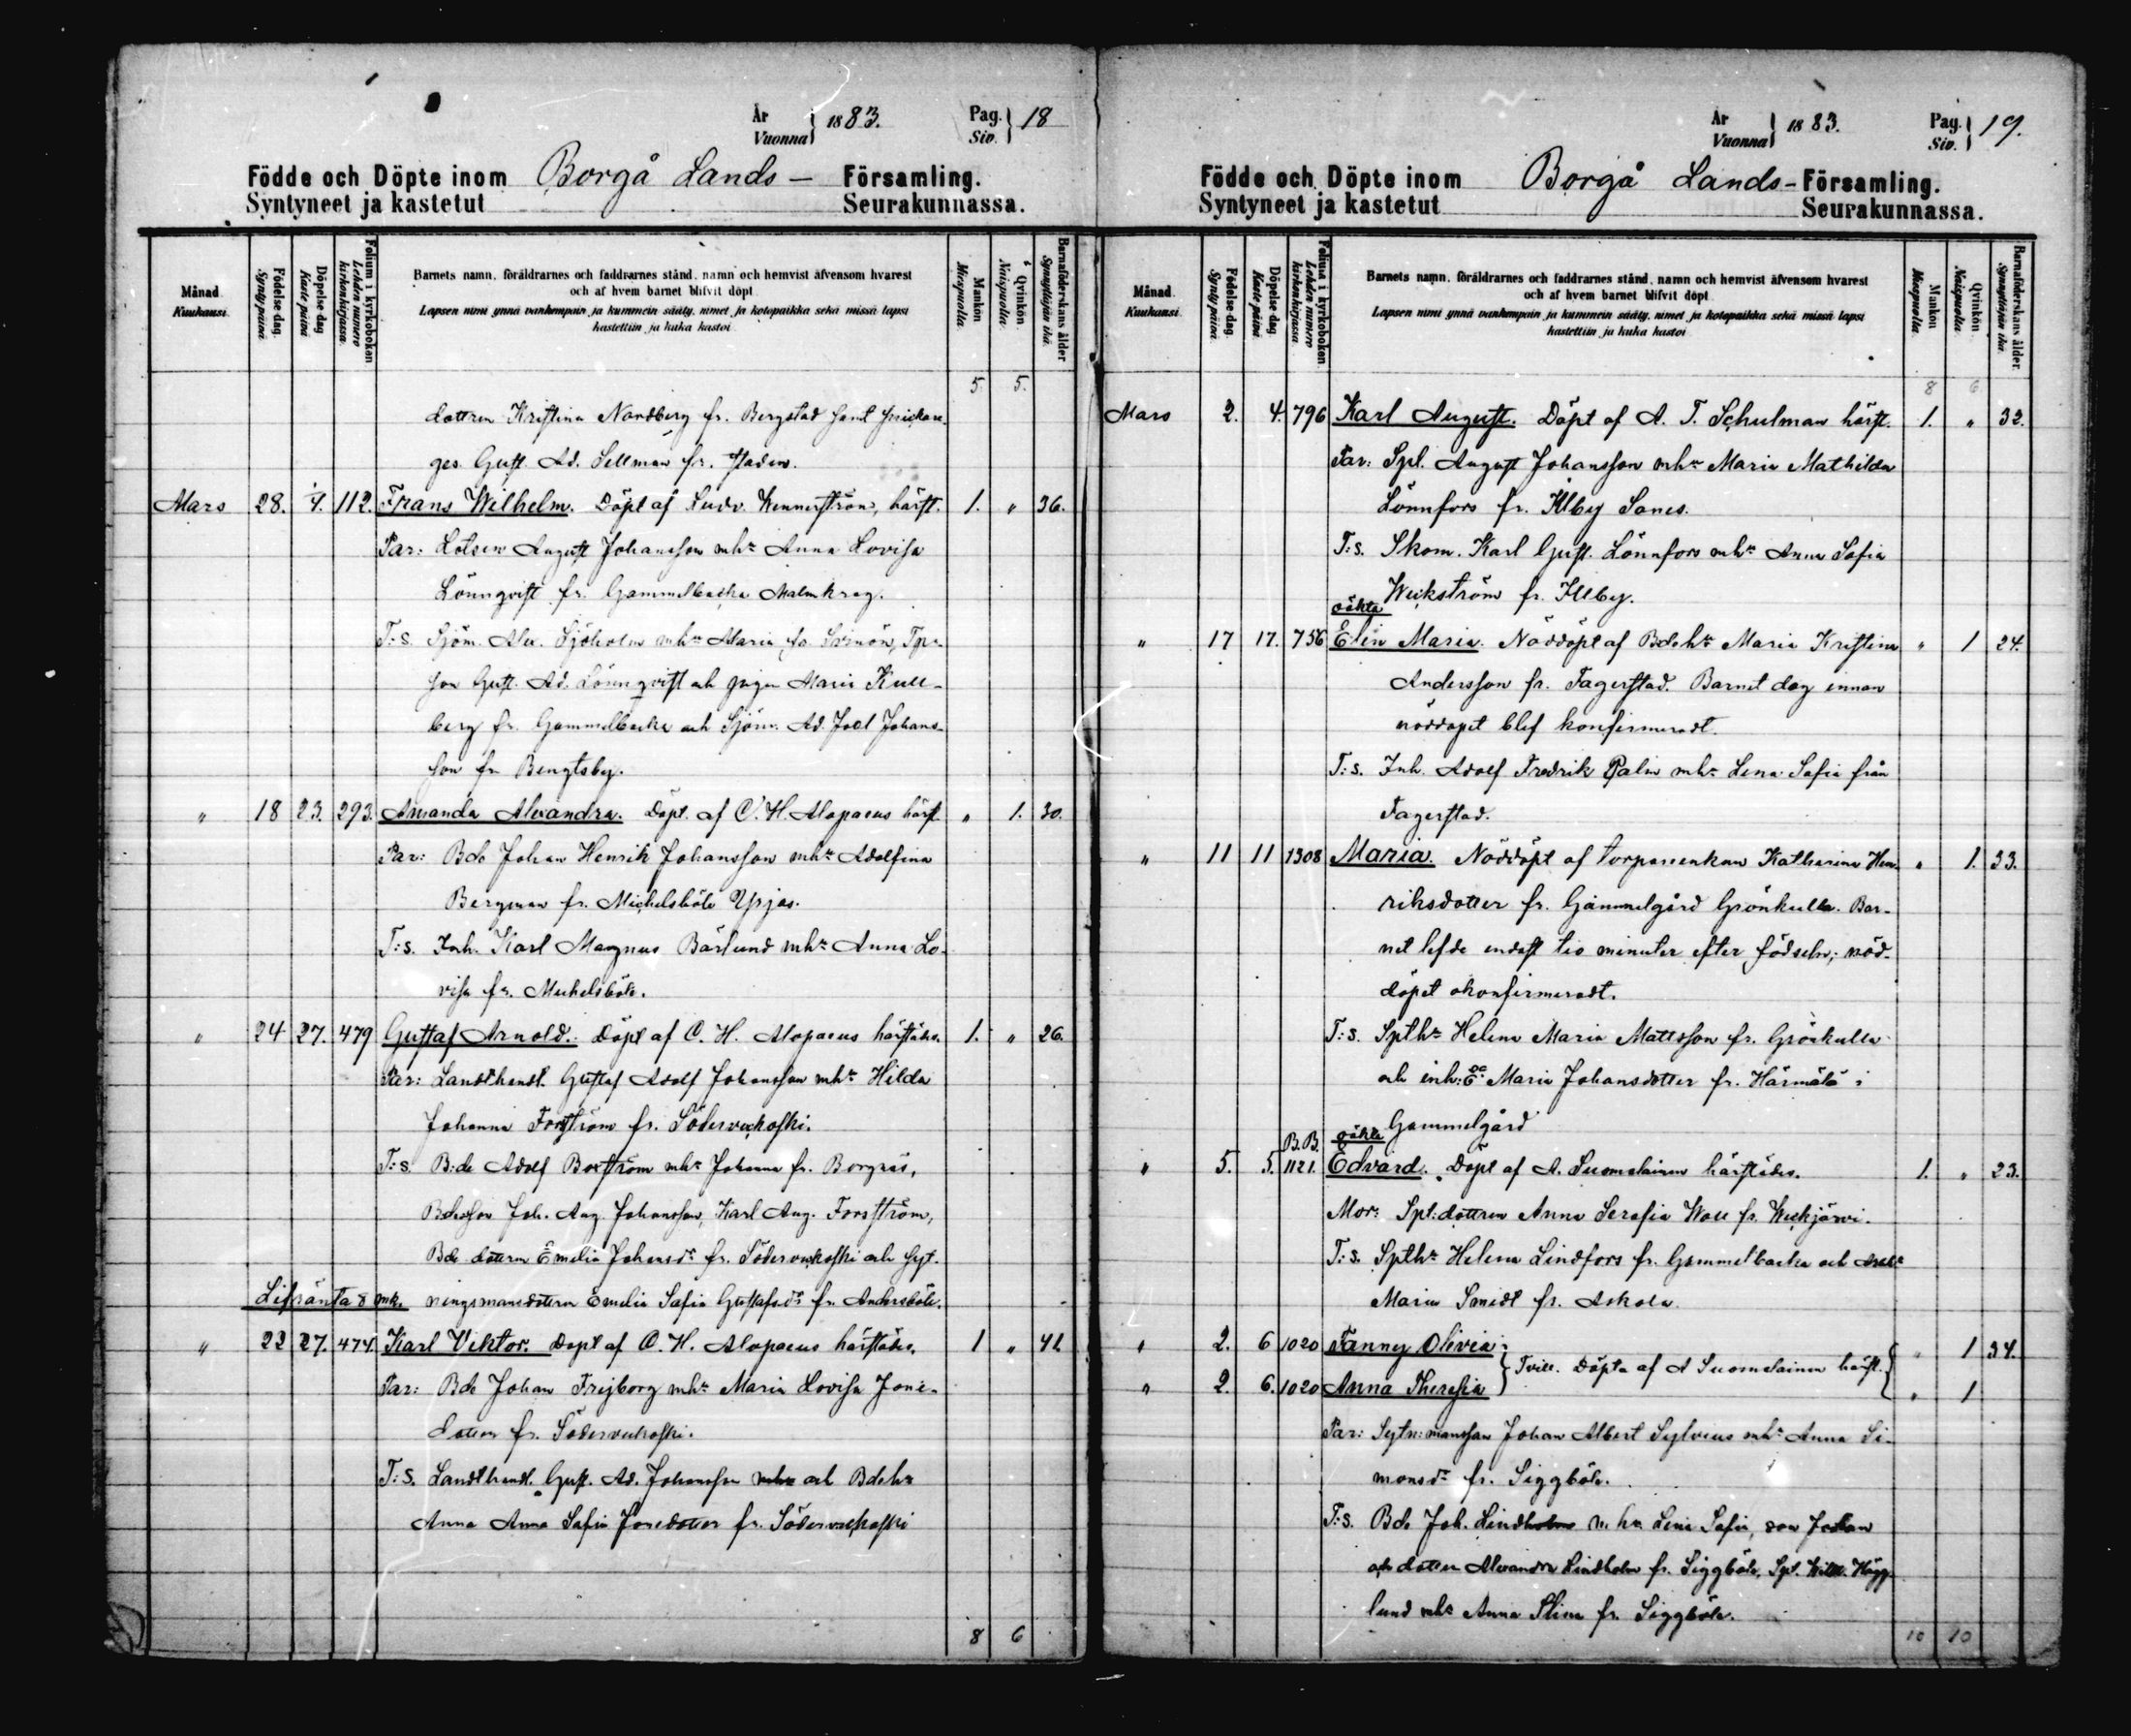 År
Vuonna } 1883. Pag.
Siv. } 18
Födde och Döpte inom Borgå Lands- Församling.
Syntyneet ja kastetut Seurakunnassa.
Månad.
Kuukausi.
Födelse dag.
Synty päivä.
Döpelse dag.
Kaste päivä.
Folium i kyrkoboken.
Lehden numero kirkonkirjassa.
Barnets namn, föräldrarnes och faddrarnes stånd, namn och hemvist äfvensom hvarest
och af hvem barnet blifvit döpt.
Lapsen nimi ynnä vanhempain ja kummein sääty, nimet ja kotopaikka sekä missä lapsi
kastettiin ja kuka kastoi.
Mankön
Miespuolia.
Qvinkön
Naispuolia.
Barnaföderskans ålder
Synnyttäjän ikä.
5. 5.
dottren Kristina Nordberg fr. Bergstad samt
ges. Gust. Ad. Sellman fr. staden.
Mars 28. 112. Frans Wilhelm. Döpt af Ludv. Wennerström, härst. 1. " 36.
Par: Lotsen August Johansson mhr Anna Lovisa
Lönnqvist fr. Gammelbacka Malmkrog.
T:s. Sjöm. Alex. Sjöholm mhr Maria fr. Svinön,
son Gust. Ad. Lönnqvist och pigan Maria Kull-
berg fr. Gammelbacka och Sjöm. Ad. Joel Johans-
son fr. Bengtsby.
" 18 23. 293. Amanda Alexandra. Döpt. af C. H. Alopaeus härst. " 1. 30.
Par: Bde Johan Henrik Johansson mhr Adolfina
Bergman fr. Michelsböle Yrjas.
T:s. Inh. Karl Magnus Bärlund mhr Anna Lo-
visa fr. Michelsböle.
" 24 27. 479 Gustaf Arnold. Döpt af C. H. Alopaeus härstädes. 1. " 26.
Par: Landthandl. Gustaf Adolf Johansson mhr Hilda
Johanna Forsström fr. Söderveckoski.
T:s. B:de Adolf Boxström mhr Johanna fr. Borgnäs,
Bdesson Joh. Aug. Johansson, Karl Aug. Forsström,
Bde dottern Emelia Johansdr fr. Söderveckoski och Syt-
Lifränta 8 mk. ningsmansdottern Emelia Sofia Gustafsdr fr. Andersböle.
" 22 27. 474. Karl Viktor. Döpt af C. H. Alopaeus härstädes. 1 " 42
Par: Bde Johan Frejborg mhr Maria Lovisa Jone-
dotter fr. Söderveckoski.
T:s. Landthandl. Gust. Ad. Johansson mhr och Bdehr
Anna Anna Sofia Jonedotter fr. Söderveckoski
8 6
År
Vuonna } 1883. Pag.
Siv. } 19.
Födde och Döpte inom Borgå Lands- Församling.
Syntyneet ja kastetut Seurakunnassa.
Månad.
Kuukausi.
Födelse dag.
Synty päivä.
Döpelse dag.
Kaste päivä.
Folium i kyrkoboken.
Lehden numero kirkonkirjassa.
Barnets namn, föräldrarnes och faddrarnes stånd, namn och hemvist äfvensom hvarest
och af hvem barnet blifvit döpt.
Lapsen nimi ynnä vanhempain ja kummein sääty, nimet ja kotopaikka sekä missä lapsi
kastettiin ja kuka kastoi.
Mankön
Miespuolia.
Qvinkön
Naispuolia.
Barnaföderskans ålder.
Synnyttäjän ikä.
8 6
Mars 2. 4. 796 Karl August. Döpt af A. T. Schulman härst. 1. " 32.
Par: Spl. August Johansson mhr Maria Mathilda
Lönnfors fr. Illby Sanes.
T:s. Skom. Karl Gust. Lönnfors mhr Anna Sofia
Weckström fr. Illby.
oäkta
" 17 17. 756 Elin Maria. Nöddöpt af Bdehr Maria Kristina " 1 24.
Andersson fr. Fagerstad. Barnet dog innan
nöddopet blef konfirmeradt.
T:s. Inh. Adolf Fredrik Palin mhr Lena Sofia från
Fagerstad.
" 11 11 1308 Maria. Nöddöpt af torparenkan Katharina Hen- " 1. 33.
riksdotter fr. Gammelgård Grönkulla. Bar-
net lefde endast tio minuter efter födseln; nöd-
döpet okonfirmeradt.
T:s. Spthr Helena Maria Mattsson fr. Grönkulla
och inh: Maria Johansdotter fr. Härmälä i
Gammelgård
B.B. oäkta
" 5. 5. 1121. Edvard. Döpt af A. Suomalainen härstädes. 1. " 23.
Mor: Spl:dottren Anna Serafia Wall fr. Weckjärvi.
T:s. Spthr Helena Lindfors fr. Gammelbacka och
Maria Smidt fr. Askola.
" 2. 6 1020 Fanny Olivia " 1 34.
} Tvill. Döpta af A Suomalainen härst. {
" 2. 6. 1020 Anna Theresia " 1
Par: Sytn:mansson Johan Albert Sylvius mhr Anna Si-
monsdr fr. Siggböle.
T:s. Bde Joh. Lindholm m. hr Lena Sofia, son Johan
och dotter Alexandra Lindholm fr. Siggböle, Spl. Wilh. Hägg-
lund mhr Anna Stina fr. Siggböle.
10 10